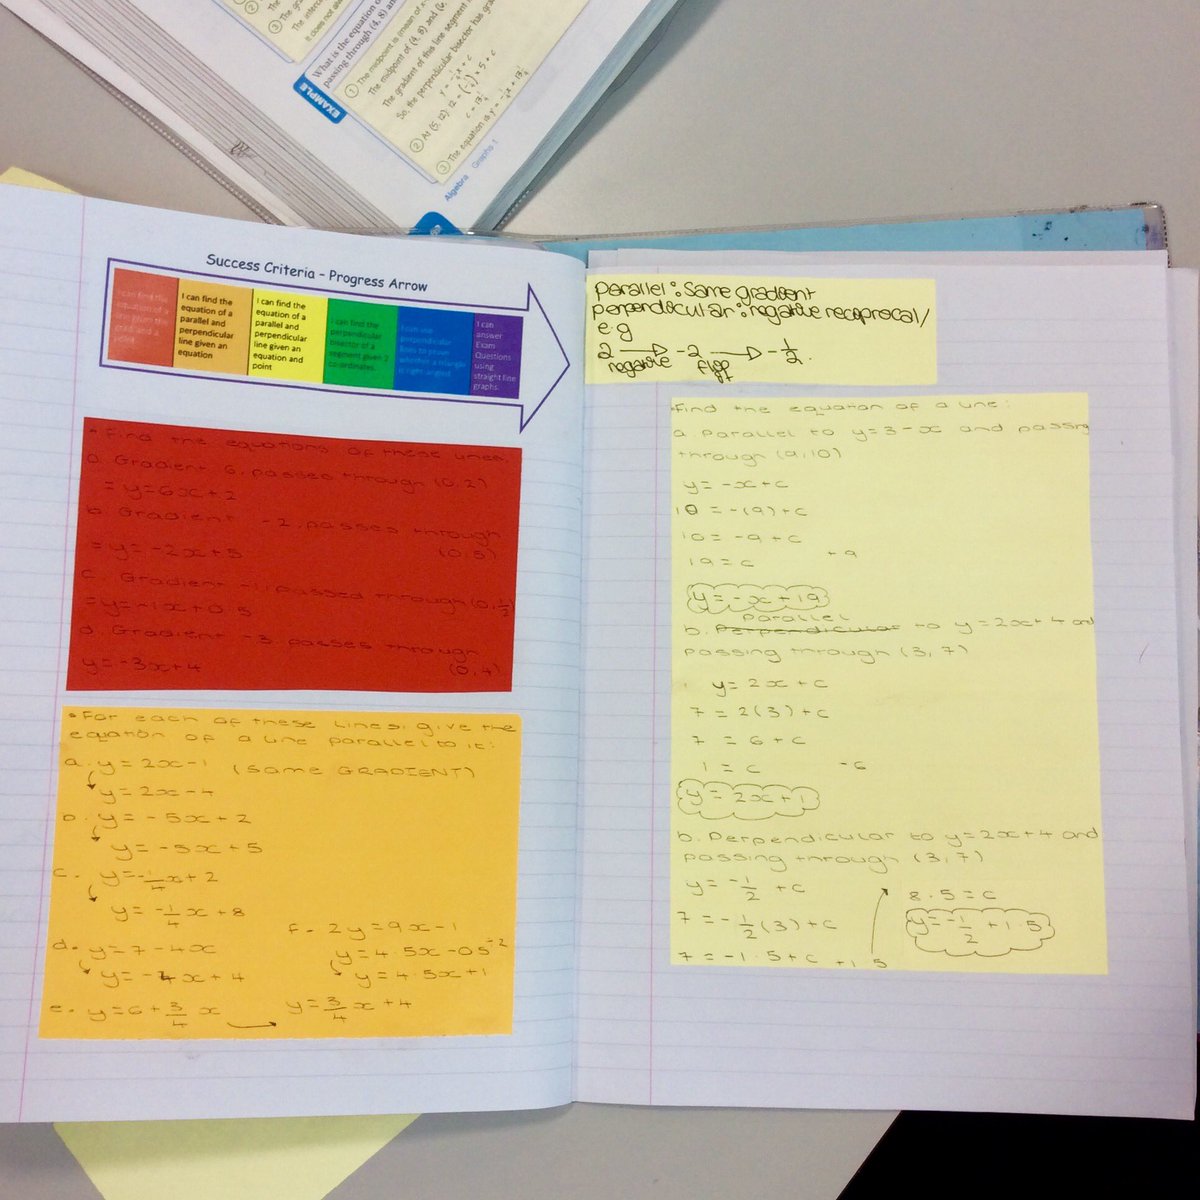 ② The
③ The gra
The interc
It does not als
What is the equation of
passing through (4, 8) an
EXAMPLE
① The midpoint is (mean of x-
The midpoint of (4, 8) and (6,
The gradient of this line segment
So, the perpendicular bisector has gra
y = -¼x + c
② At (5, 12), 12 = (-¼) × 5 + c
c = 13¼
③ The equation is y = -¼x + 13¼
Algebra Graphs 1
Success Criteria – Progress Arrow
I can find the
equation of a
line given the
gradient and a
point
I can find the
equation of a
parallel and
perpendicular
line given an
equation
I can find the
equation of a
parallel and
perpendicular
line given an
equation and
point
I can find the
perpendicular
bisector of a
segment given 2
co-ordinates.
I can use
perpendicular
lines to prove
whether a triangle
is right-angled
I can
answer
Exam
Questions
using
straight line
graphs.
• Find the equations of these lines.
a. Gradient 6, passes through (0,2)
= y=6x+2
b. Gradient -2, passes through
(0,5)
= y= -2x+5
c. Gradient -1, passed through (0,½)
= y= -1x+0.5
d. Gradient -3 passes through
(0,4)
y=-3x+4
• For each of these lines, give the
equation of a line parallel to it:
a. y = 2x-1 (same GRADIENT)
y = 2x-4
b. y= -5x+2
y= -5x+5
c. y=-¼x+2
y= -¼x+8
d. y=7-4x
y= -4x+4
e. y=6+¾x
y=¾x+4
f. 2y=9x-1
y=4.5x-05
-2
y=4.5x+1
Parallel: same gradient
perpendicular: negative reciprocal/
e.g
2 → -2 → -½.
negative flip it
Find the equation of a line:
a. Parallel to y=3-x and passing
through (9,10)
y= -x+c
10 = -(9)+c
10= -9+c
19=c +9
y= -x+19
Parallel
b. Perpendicular to y=2x+4 and
passing through (3,7)
y=2x+c
7=2(3)+c
7 = 6+c
1 = c -6
y= 2x+1
b. Perpendicular to y=2x+4 and
passing through (3,7)
y= -½ +c
7= -½(3)+c
7= -1.5+c +1.5
8.5=c
y= -½ +1.5